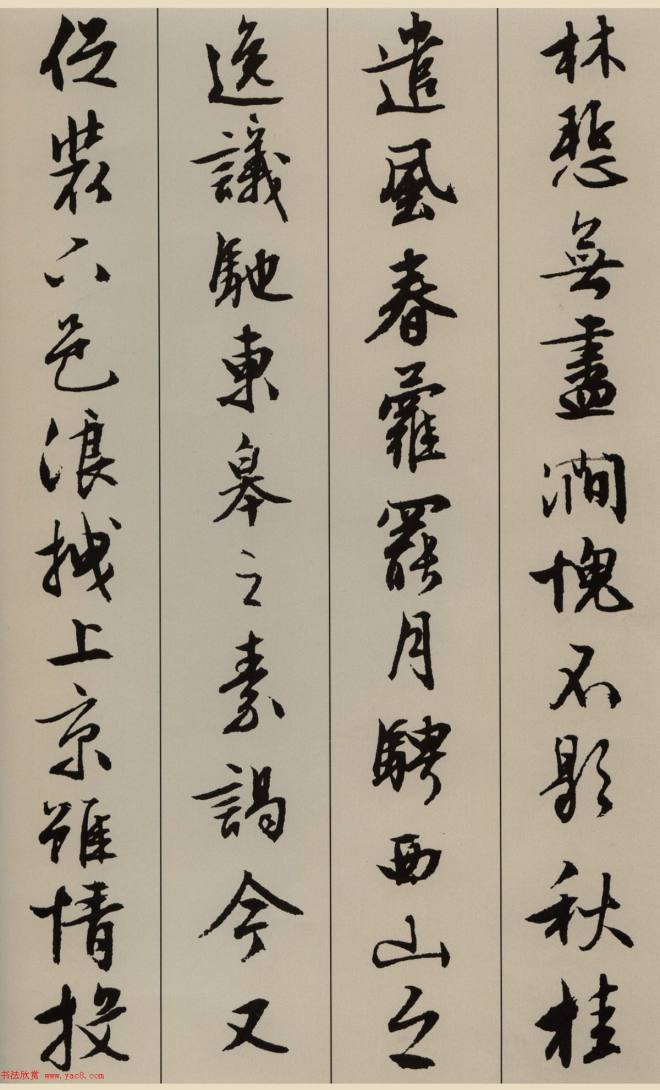 林慙無盡澗愧不歇秋桂
遣風春蘿罷月騁西山之
逸議馳東皋之素謁今又
促裝下邑浪拽上京雖情投
书法欣赏 www.yac8.com